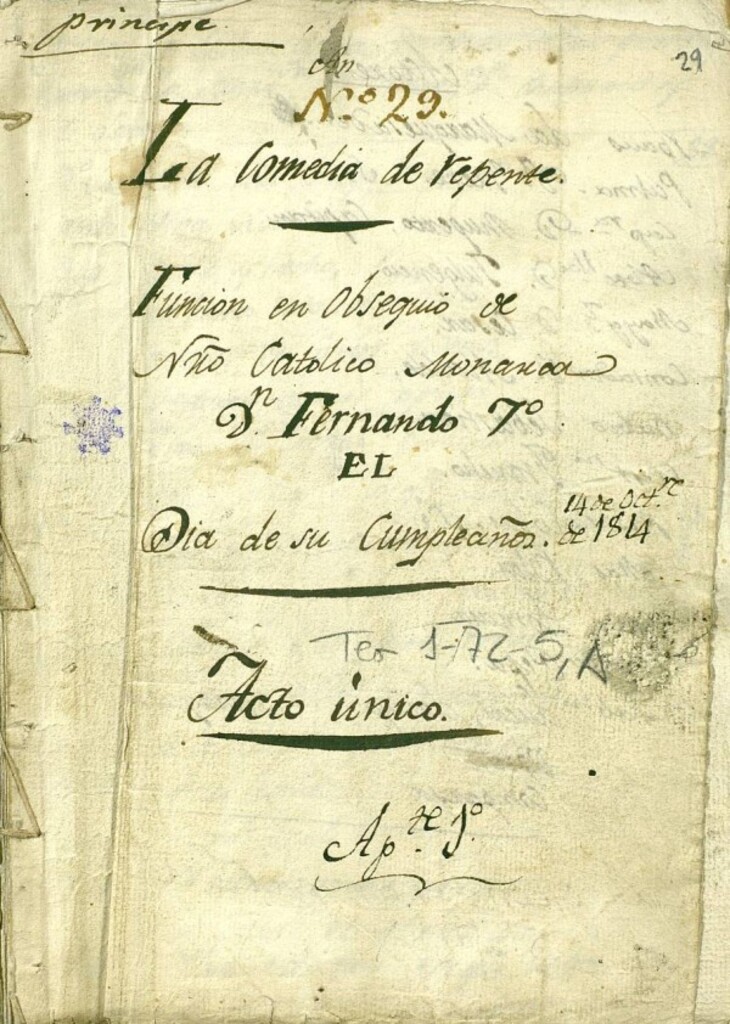 principe
29
N.º 29.
La Comedia de repente.
Funcion en Obsequio de
Nrõ Catolico Monarca
Dⁿ. Fernando 7º
EL
Dia de su Cumpleaños. 14 de Oct.ʳᵉ de 1814
Tea 1-172-5, A
Acto único.
Ap.ᵗᵉ 1º